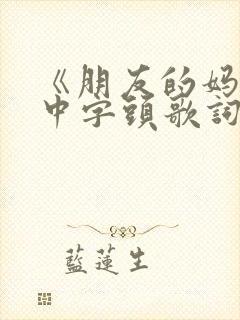 《朋友的妈
中字頭歌詞
藍蓮生